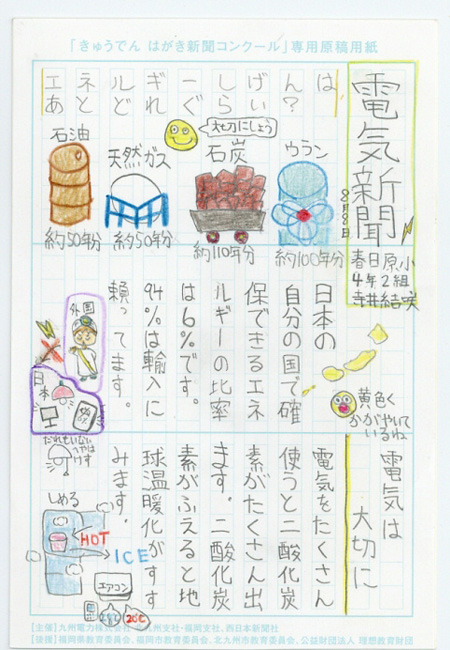 「きゅうでん はがき新聞コンクール」専用原稿用紙
電気新聞
8月8日
春日原小
4年2組
寺井結咲
エネルギーしげんは
あとどれぐらい？
大切にしよう
石油
約50年分
天然ガス
約50年分
石炭
約110年分
ウラン
約100年分
日本の
自分の国で確
保できるエネ
ルギーの比率
は6%です。
94%は輸入に
頼ってます。
外国
日本
黄色く
かがやいて
いるね
電気は
大切に
電気をたくさん
使うと二酸化炭
素がたくさん出
ます。二酸化炭
素がふえると地
球温暖化がすす
みます。
だれもいない
へやは
けす
しめる
HOT
ICE
エアコン
28℃
20℃
【主催】九州電力株式会社 北九州支社・福岡支社、西日本新聞社
【後援】福岡県教育委員会、福岡市教育委員会、北九州市教育委員会、公益財団法人 理想教育財団